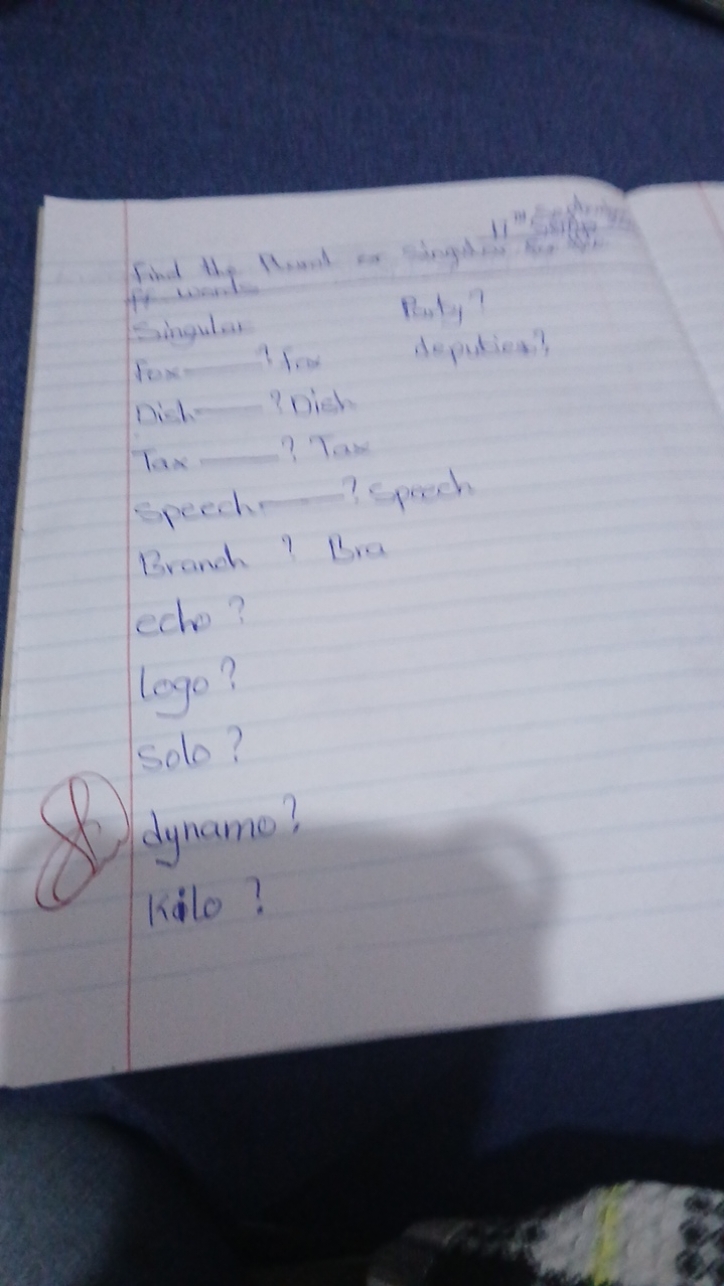 11th
Find the Plural or Singular for the
ff words
Singular
Fox ? fox
Dish ? Dish
Tax ? Tax
Speech ? Speech
Branch ? Bra
echo ?
logo ?
Solo ?
dynamo ?
Kilo ?
Party ?
deputies ?